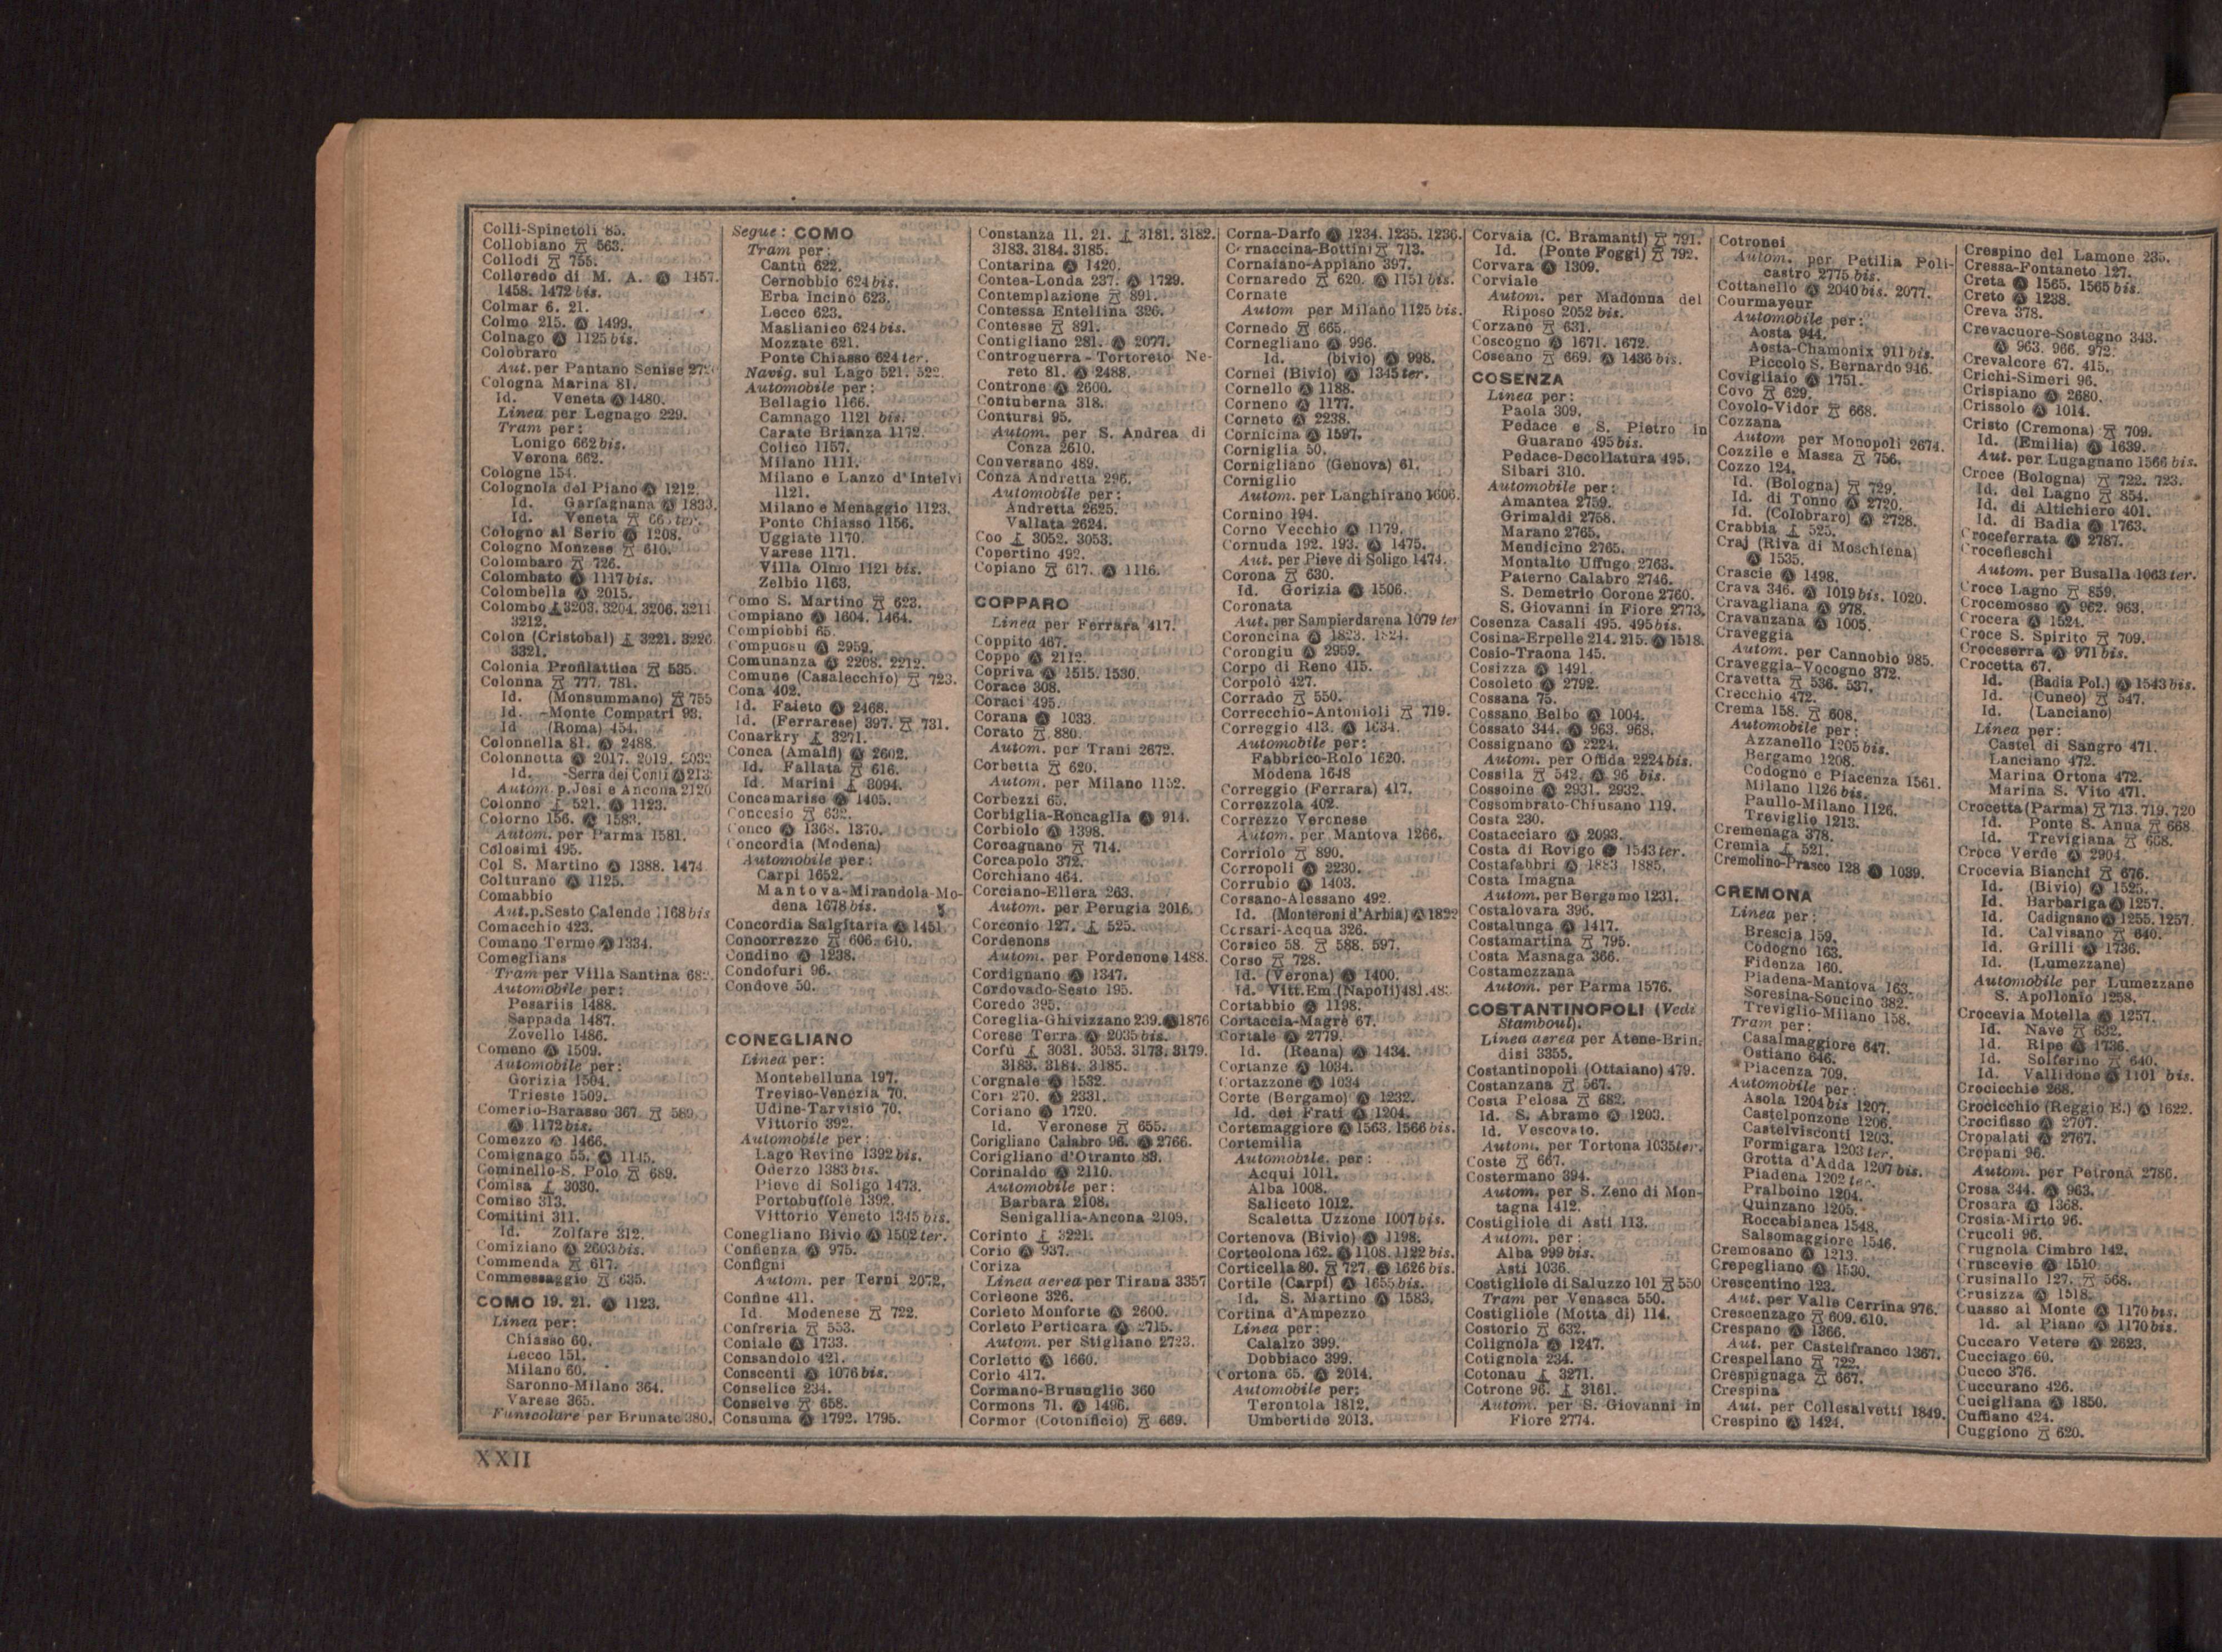 Colli-Spinetoli 85.
Collobiano 563.
Collodi 755.
Colloredo di M. A. Ⓐ 1457.
1458. 1472 bis.
Colmar 6. 21.
Colmo 215. Ⓐ 1499.
Colnago Ⓐ 1125 bis.
Colobraro
Aut. per Pantano Senise
Cologna Marina 81.
Id. Veneta Ⓐ 1480.
Linea per Legnago 229.
Tram per:
Lonigo 662 bis.
Verona 662.
Cologne 154.
Colognola del Piano Ⓐ 1212.
Id. Garfagnana Ⓐ 1833.
Id. Veneta
Cologno al Serio Ⓐ 1208.
Cologno Monzese 610.
Colombaro 726.
Colombato Ⓐ 1117 bis.
Colombella Ⓐ 2015.
Colombo 3203. 3204. 3206. 3211
3212.
Colon (Cristobal) 3221. 3226
3321.
Colonia Profilattica 535.
Colonna 777. 781.
Id. (Monsummano) 755
Id. -Monte Compatri 93.
Id (Roma) 454.
Colonnella 81. Ⓐ 2488.
Colonnetta Ⓐ 2017. 2019.
Id. -Serra dei Conti Ⓐ
Autom. p. Jesi e Ancona 2120
Colonno 521. Ⓐ 1123.
Colorno 156. Ⓐ 1583.
Autom. per Parma 1581.
Colosimi 495.
Col S. Martino Ⓐ 1388. 1474
Colturano Ⓐ 1125.
Comabbio
Aut. p. Sesto Calende 1168 bis
Comacchio 423.
Comano Terme Ⓐ 1334.
Comeglians
Tram per Villa Santina
Automobile per:
Pesariis 1488.
Sappada 1487.
Zovello 1486.
Comeno Ⓐ 1509.
Automobile per:
Gorizia 1504.
Trieste 1509.
Comerio-Barasso 367. 589.
Ⓐ 1172 bis.
Comezzo Ⓐ 1466.
Comignago 55. Ⓐ 1145.
Cominello-S. Polo 689.
Comisa 3030.
Comiso 313.
Comitini 311.
Id. Zolfare 312.
Comiziano Ⓐ 2603 bis.
Commenda 617.
Commessaggio 635.
COMO 19. 21. Ⓐ 1123.
Linea per:
Chiasso 60.
Lecco 151.
Milano 60.
Saronno-Milano 364.
Varese 365.
Funicolare per Brunate 380.
Segue: COMO
Tram per:
Cantù 622.
Cernobbio 624 bis.
Erba Incino 623.
Lecco 623.
Maslianico 624 bis.
Mozzate 621.
Ponte Chiasso 624 ter.
Navig. sul Lago 521. 522.
Automobile per:
Bellagio 1166.
Camnago 1121 bis.
Carate Brianza 1172.
Colico 1157.
Milano 1111.
Milano e Lanzo d'Intelvi
1121.
Milano e Menaggio 1123.
Ponte Chiasso 1156.
Uggiate 1170.
Varese 1171.
Villa Olmo 1121 bis.
Zelbio 1163.
Como S. Martino 623.
Compiano Ⓐ 1604. 1464.
Compiobbi 65.
Compuosu Ⓐ 2959.
Comunanza Ⓐ 2208. 2212.
Comune (Casalecchio) 723.
Cona 402.
Id. Faieto Ⓐ 2468.
Id. (Ferrarese) 397. 731.
Conarkry 3271.
Conca (Amalfi) Ⓐ 2602.
Id. Fallata 616.
Id. Marini 3094.
Concamarise Ⓐ 1405.
Concesio 632.
Conco Ⓐ 1368. 1370.
Concordia (Modena)
Automobile per:
Carpi 1652.
Mantova-Mirandola-Mo-
dena 1678 bis.
Concordia Salgitaria Ⓐ 1451.
Concorrezzo 606. 610.
Condino Ⓐ 1238.
Condofuri 96.
Condove 50.
CONEGLIANO
Linea per:
Montebelluna 197.
Treviso-Venezia 70.
Udine-Tarvisio 70.
Vittorio 392.
Automobile per:
Lago Revine 1392 bis.
Oderzo 1383 bis.
Pieve di Soligo 1473.
Portobuffolè 1392.
Vittorio Veneto 1345 bis.
Conegliano Bivio Ⓐ 1502 ter.
Confienza Ⓐ 975.
Configni
Autom. per Terni 2072.
Confine 411.
Id. Modenese 722.
Confreria 553.
Coniale Ⓐ 1733.
Consandolo 421.
Conscenti Ⓐ 1076 bis.
Conselice 234.
Conselve 658.
Consuma Ⓐ 1792. 1795.
Constanza 11. 21. 3181. 3182.
3183. 3184. 3185.
Contarina Ⓐ 1420.
Contea-Londa 237. Ⓐ 1729.
Contemplazione 891.
Contessa Entellina 326.
Contesse 891.
Contigliano 281. Ⓐ 2077.
Controguerra-Tortoreto Ne-
reto 81. Ⓐ 2488.
Controne Ⓐ 2600.
Contuberna 318.
Contursi 95.
Autom. per S. Andrea di
Conza 2610.
Conversano 489.
Conza Andretta 296.
Automobile per:
Andretta 2625.
Vallata 2624.
Coo 3052. 3053.
Copertino 492.
Copiano 617. Ⓐ 1116.
COPPARO
Linea per Ferrara 417.
Coppito 467.
Coppo Ⓐ 2112.
Copriva Ⓐ 1515. 1530.
Corace 308.
Coraci 495.
Corana Ⓐ 1033.
Corato 880.
Autom. per Trani 2672.
Corbetta 620.
Autom. per Milano 1152.
Corbezzi 65.
Corbiglia-Roncaglia Ⓐ 914.
Corbiolo Ⓐ 1398.
Corcagnano 714.
Corcapolo 372.
Corchiano 464.
Corciano-Ellera 263.
Autom. per Perugia 2016.
Corconio 127. 525.
Cordenons
Autom. per Pordenone 1488.
Cordignano Ⓐ 1347.
Cordovado-Sesto 195.
Coredo 395.
Coreglia-Ghivizzano 239. Ⓐ 1876
Corese Terra Ⓐ 2035 bis.
Corfù 3031. 3053. 3173. 3179.
3183. 3184. 3185.
Corgnale Ⓐ 1532.
Cori 270. Ⓐ 2331.
Coriano Ⓐ 1720.
Id. Veronese 655.
Corigliano Calabro 96. Ⓐ 2766.
Corigliano d'Otranto 89.
Corinaldo Ⓐ 2110.
Automobile per:
Barbara 2108.
Senigallia-Ancona 2108.
Corinto 3221.
Corio Ⓐ 937.
Coriza
Linea aerea per Tirana 3357
Corleone 326.
Corleto Monforte Ⓐ 2600.
Corleto Perticara Ⓐ 2715.
Autom. per Stigliano 2723.
Corletto Ⓐ 1660.
Corlo 417.
Cormano-Brusuglio 360
Cormons 71. Ⓐ 1496.
Cormor (Cotonificio) 669.
Corna-Darfo Ⓐ 1234. 1235. 1236.
Cornaccina-Bottini 713.
Cornaiano-Appiano 397.
Cornaredo 620. Ⓐ 1151 bis.
Cornate
Autom per Milano 1125 bis.
Cornedo 665.
Cornegliano Ⓐ 996.
Id. (bivio) Ⓐ 998.
Cornei (Bivio) Ⓐ 1345 ter.
Cornello Ⓐ 1188.
Corneno Ⓐ 1177.
Corneto Ⓐ 2238.
Cornicina Ⓐ 1597.
Corniglia 50.
Cornigliano (Genova) 61.
Corniglio
Autom. per Langhirano 1606.
Cornino 194.
Corno Vecchio Ⓐ 1179.
Cornuda 192. 193. Ⓐ 1475.
Aut. per Pieve di Soligo 1474.
Corona 630.
Id. Gorizia Ⓐ 1506.
Coronata
Aut. per Sampierdarena 1079 ter
Coroncina Ⓐ 1823. 1824.
Corongiu Ⓐ 2959.
Corpo di Reno 415.
Corpolò 427.
Corrado 550.
Correcchio-Antonioli 719.
Correggio 413. Ⓐ 1634.
Automobile per:
Fabbrico-Rolo 1620.
Modena 1648
Correggio (Ferrara) 417.
Correzzola 402.
Correzzo Veronese
Autom. per Mantova 1266.
Corriolo 890.
Corropoli Ⓐ 2230.
Corrubio Ⓐ 1403.
Corsano-Alessano 492.
Id. (Monteroni d'Arbia) Ⓐ 1822
Corsari-Acqua 326.
Corsico 58. 588. 597.
Corso 728.
Id. (Verona) Ⓐ 1400.
Id. Vitt. Em. (Napoli) 481.
Cortabbio Ⓐ 1198.
Cortaccia-Magrè 67.
Cortale Ⓐ 2779.
Id. (Reana) Ⓐ 1434.
Cortanze Ⓐ 1034.
Cortazzone Ⓐ 1034
Corte (Bergamo) Ⓐ 1232.
Id. dei Frati Ⓐ 1204.
Cortemaggiore Ⓐ 1563. 1566 bis.
Cortemilia
Automobile. per:
Acqui 1011.
Alba 1008.
Saliceto 1012.
Scaletta Uzzone 1007 bis.
Cortenova (Bivio) Ⓐ 1198.
Corteolona 162. Ⓐ 1108. 1122 bis.
Corticella 80. 727. Ⓐ 1626 bis.
Cortile (Carpi) Ⓐ 1655 bis.
Id. S. Martino Ⓐ 1583.
Cortina d'Ampezzo
Linea per:
Calalzo 399.
Dobbiaco 399.
Cortona 65. Ⓐ 2014.
Automobile per:
Terontola 1812.
Umbertide 2013.
Corvaia (C. Bramanti) 791.
Id. (Ponte Foggi) 792.
Corvara Ⓐ 1309.
Corviale
Autom. per Madonna del
Riposo 2052 bis.
Corzano 631.
Coscogno Ⓐ 1671. 1672.
Coseano 669. Ⓐ 1436 bis.
COSENZA
Linea per:
Paola 309.
Pedace e S. Pietro in
Guarano 495 bis.
Pedace-Decollatura 495.
Sibari 310.
Automobile per:
Amantea 2759.
Grimaldi 2758.
Marano 2765.
Mendicino 2765.
Montalto Uffugo 2763.
Paterno Calabro 2746.
S. Demetrio Corone 2760.
S. Giovanni in Fiore 2773.
Cosenza Casali 495. 495 bis.
Cosina-Erpelle 214. 215. Ⓐ 1518.
Cosio-Traona 145.
Cosizza Ⓐ 1491
Cosoleto Ⓐ 2792.
Cossana 75.
Cossano Belbo Ⓐ 1004.
Cossato 344. Ⓐ 963. 968.
Cossignano Ⓐ 2224.
Autom. per Offida 2224 bis.
Cossila 542. Ⓐ 96 bis.
Cossoine Ⓐ 2931. 2932.
Cossombrato-Chiusano 119.
Costa 230.
Costacciaro Ⓐ 2093.
Costa di Rovigo Ⓐ 1543 ter.
Costafabbri Ⓐ 1883. 1885.
Costa Imagna
Autom. per Bergamo 1231.
Costalovara 396.
Costalunga Ⓐ 1417.
Costamartina 795.
Costa Masnaga 366.
Costamezzana
Autom. per Parma 1576.
COSTANTINOPOLI (Vedi
Stamboul).
Linea aerea per Atene-Brin,
disi 3355.
Costantinopoli (Ottaiano) 479.
Costanzana 567.
Costa Pelosa 682.
Id. S. Abramo Ⓐ 1203.
Id. Vescovato.
Autom. per Tortona 1035 ter.
Coste 667.
Costermano 394.
Autom. per S. Zeno di Mon-
tagna 1412.
Costigliole di Asti 113.
Autom. per:
Alba 999 bis.
Asti 1036.
Costigliole di Saluzzo 101 550
Tram per Venasca 550.
Costigliole (Motta di) 114.
Costorio 632.
Colignola Ⓐ 1247.
Cotignola 234.
Cotonau 3271.
Cotrone 96. 3161.
Autom. per S. Giovanni in
Fiore 2774.
Cotronei
Autom. per Petilia Poli-
castro 2775 bis.
Cottanello Ⓐ 2040 bis. 2077.
Courmayeur
Automobile per:
Aosta 944.
Aosta-Chamonix 911 bis.
Piccolo S. Bernardo 946.
Covigliaio Ⓐ 1751.
Covo 629.
Covolo-Vidor 668.
Cozzana
Autom per Monopoli 2674.
Cozzile e Massa 756.
Cozzo 124.
Id. (Bologna) 729.
Id. di Tonno Ⓐ 2720.
Id. (Colobraro) Ⓐ 2728.
Crabbia 525.
Craj (Riva di Moschiena)
Ⓐ 1535.
Crascie Ⓐ 1498.
Crava 346. Ⓐ 1019 bis. 1020.
Cravagliana Ⓐ 978.
Cravanzana Ⓐ 1005.
Craveggia
Autom. per Cannobio 985.
Craveggia-Vocogno 372.
Cravetta 536. 537.
Crecchio 472.
Crema 158. 608.
Automobile per:
Azzanello 1205 bis.
Bergamo 1208.
Codogno e Piacenza 1561.
Milano 1126 bis.
Paullo-Milano 1126.
Treviglio 1213.
Cremenaga 378.
Cremia 521.
Cremolino-Prasco 128 Ⓐ 1039.
CREMONA
Linea per:
Brescia 159.
Codogno 163.
Fidenza 160.
Piadena-Mantova 163.
Soresina-Soncino 382.
Treviglio-Milano 158.
Tram per:
Casalmaggiore 647.
Ostiano 646.
Piacenza 709.
Automobile per:
Asola 1204 bis 1207.
Castelponzone 1206.
Castelvisconti 1203.
Formigara 1203 ter.
Grotta d'Adda 1207 bis.
Piadena 1202 ter.
Pralboino 1204.
Quinzano 1205.
Roccabianca 1548.
Salsomaggiore 1546.
Cremosano Ⓐ 1213.
Crepegliano Ⓐ 1530.
Crescentino 123.
Aut. per Valle Cerrina 976.
Crescenzago 609. 610.
Crespano Ⓐ 1366.
Aut. per Castelfranco 1367.
Crespellano 722.
Crespignaga 667.
Crespina
Aut. per Collesalvetti 1849.
Crespino Ⓐ 1424.
Crespino del Lamone 235.
Cressa-Fontaneto 127.
Creta Ⓐ 1565. 1565 bis.
Creto Ⓐ 1238.
Creva 378.
Crevacuore-Sostegno 343.
Ⓐ 963. 966. 972.
Crevalcore 67. 415.
Crichi-Simeri 96.
Crispiano Ⓐ 2680.
Crissolo Ⓐ 1014.
Cristo (Cremona) 709.
Id. (Emilia) Ⓐ 1639.
Aut. per Lugagnano 1566 bis.
Croce (Bologna) 722. 723.
Id. del Lagno 854.
Id. di Altichiero 401.
Id. di Badia Ⓐ 1763.
Croceferrata Ⓐ 2787.
Crocefieschi
Autom. per Busalla 1063 ter.
Croce Lagno 859.
Crocemosso Ⓐ 962. 963.
Crocera Ⓐ 1524.
Croce S. Spirito 709.
Croceserra Ⓐ 971 bis.
Crocetta 67.
Id. (Badia Pol.) Ⓐ 1543 bis.
Id. (Cuneo) 547.
Id. (Lanciano)
Linea per:
Castel di Sangro 471.
Lanciano 472.
Marina Ortona 472.
Marina S. Vito 471.
Crocetta (Parma) 713. 719. 720
Id. Ponte S. Anna 668
Id. Trevigiana 668.
Croce Verde Ⓐ 2904.
Crocevia Bianchi 676.
Id. (Bivio) Ⓐ 1525.
Id. Barbariga Ⓐ 1257.
Id. Cadignano Ⓐ 1255. 1257.
Id. Calvisano 640.
Id. Grilli Ⓐ 1736.
Id. (Lumezzane)
Automobile per Lumezzane
S. Apollonio 1258.
Crocevia Motella Ⓐ 1257.
Id. Nave 632.
Id. Ripe Ⓐ 1736.
Id. Solferino 640.
Id. Vallidone Ⓐ 1101 bis.
Crocicchie 268.
Crocicchio (Reggio E.) Ⓐ 1622.
Crocifisso Ⓐ 2707.
Cropalati Ⓐ 2767.
Cropani 96.
Autom. per Petronà 2786.
Crosa 344. Ⓐ 963.
Crosara Ⓐ 1368.
Crosia-Mirto 96.
Crucoli 96.
Crugnola Cimbro 142.
Cruscevie Ⓐ 1510
Crusinallo 127. 568.
Crusizza Ⓐ 1518.
Cuasso al Monte Ⓐ 1170 bis.
Id. al Piano Ⓐ 1170 bis.
Cuccaro Vetere Ⓐ 2623.
Cucciago 60.
Cucco 376.
Cuccurano 426.
Cucigliana Ⓐ 1850.
Cuffiano 424.
Cuggiono 620.
XXII